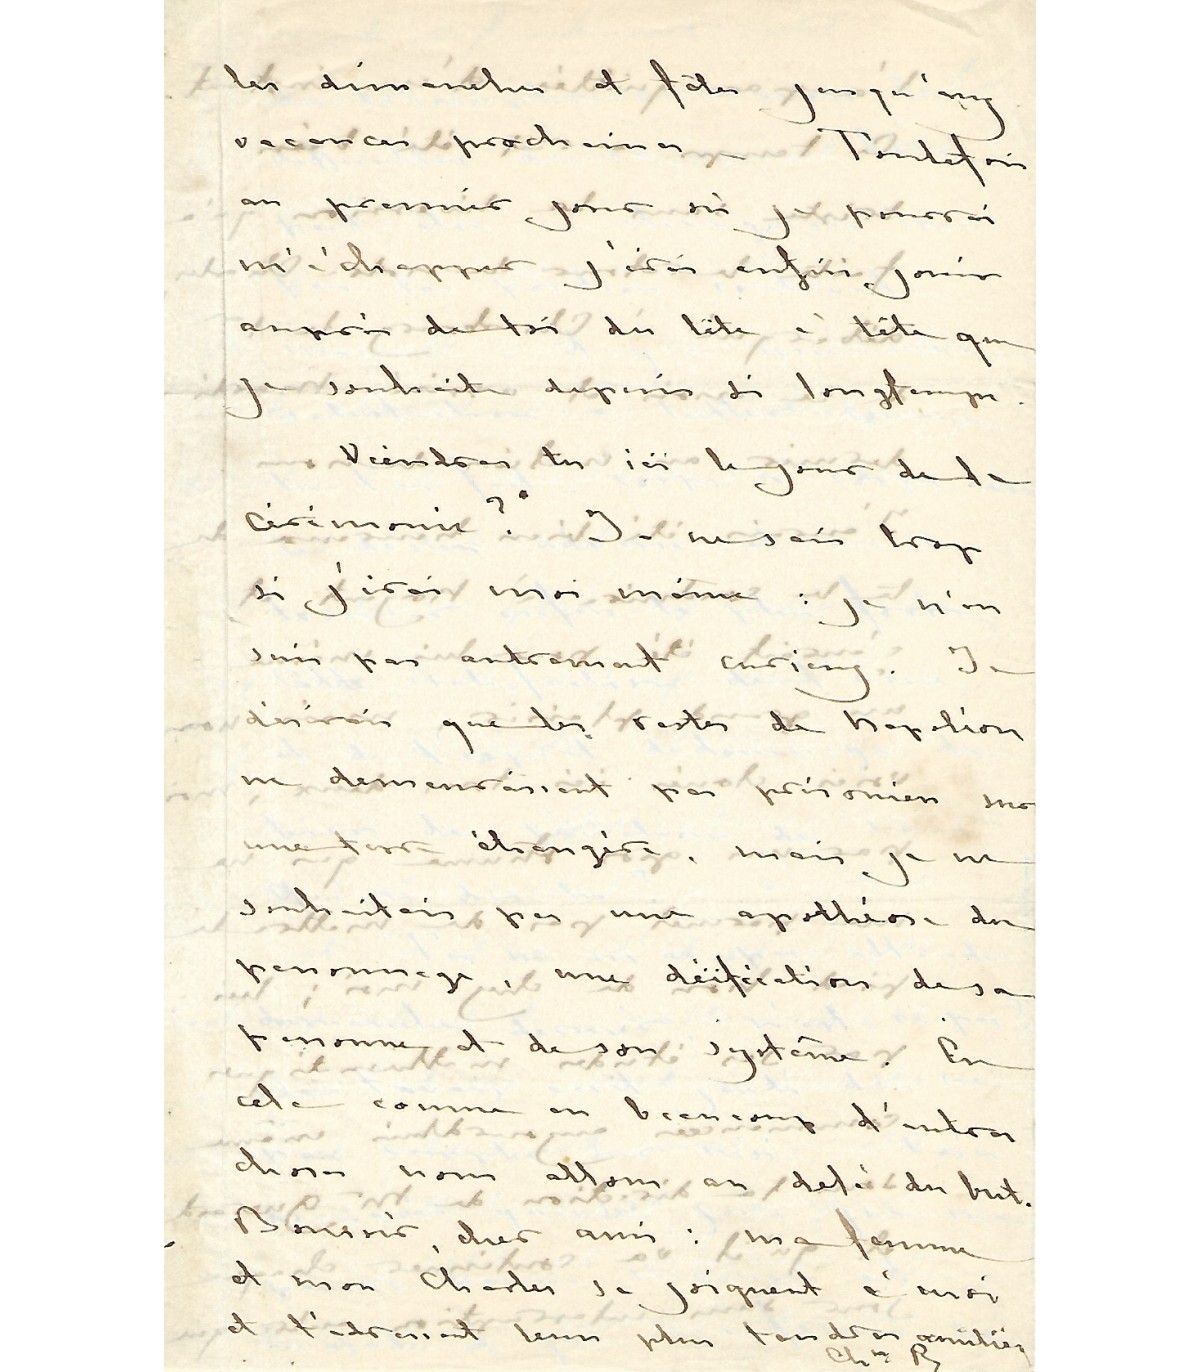 les dimanches et fêtes jusqu'aux
vacances prochaines. Toutefois
au premier jour où je pourrai
m'échapper j'irai enfin jouir
auprès de toi du tête à tête que
je souhaite depuis si longtemps.
Viendras tu ici le jour de la
Cérémonie ? Je ne sais trop
si j'irai moi même : je n'en
suis pas autrement curieux. Je
désirais que les restes de Napoléon
ne demeurassent pas prisonniers sur
une terre étrangère, mais je ne
souhaitais pas une apothéose du
personnage, une déification de sa
personne et de son système. En
cela comme en beaucoup d'autres
choses nous allons au delà du but.
Bonsoir, cher ami : ma femme
et mon Charles se joignent à moi
et t'adressent leurs plus tendres amitiés
Ch.es R